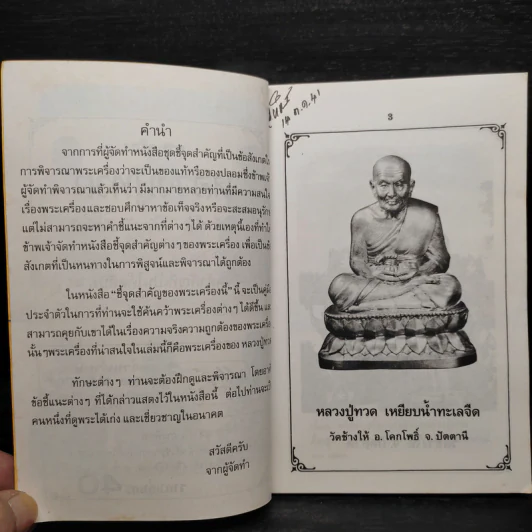 คำนำ
จากการที่ผู้จัดทำหนังสือชุดชี้จุดสำคัญที่เป็นข้อสังเกตใน
การพิจารณาพระเครื่องว่าจะเป็นของแท้หรือของปลอมซึ่งข้าพเจ้า
ผู้จัดทำพิจารณาแล้วเห็นว่า มีมากมายหลายท่านที่มีความสนใจ
เรื่องพระเครื่องและชอบศึกษาหาข้อเท็จจริงหรือจะสะสมอนุรักษ์
แต่ไม่สามารถจะหาคำชี้แนะจากที่ต่างๆได้ ด้วยเหตุนี้เองที่ทำให้
ข้าพเจ้าจัดทำหนังสือชี้จุดสำคัญต่างๆของพระเครื่อง เพื่อเป็นข้อ
สังเกตที่เป็นหนทางในการพิสูจน์และพิจารณาได้ถูกต้อง
ในหนังสือ “ชี้จุดสำคัญของพระเครื่องนี้” นี้ จะเป็นคู่มือ
ประจำตัวในการที่ท่านจะใช้ค้นคว้าพระเครื่องต่างๆ ได้ดีขึ้น และ
สามารถคุยกับเขาได้ในเรื่องความจริงความถูกต้องของพระเครื่อง
นั้นๆพระเครื่องที่น่าสนใจในเล่มนี้ก็คือพระเครื่องของ หลวงปู่ทวด
ทักษะต่างๆ ท่านจะต้องฝึกดูและพิจารณา โดยอาศัย
ข้อชี้แนะต่างๆ ที่ได้กล่าวแสดงไว้ในหนังสือนี้ ต่อไปท่านจะเป็น
คนหนึ่งที่ดูพระได้เก่ง และเชี่ยวชาญในอนาคต
สวัสดีครับ
จากผู้จัดทำ
14 ต.ค.41
3
หลวงปู่ทวด เหยียบน้ำทะเลจืด
วัดช้างให้ อ. โคกโพธิ์ จ. ปัตตานี